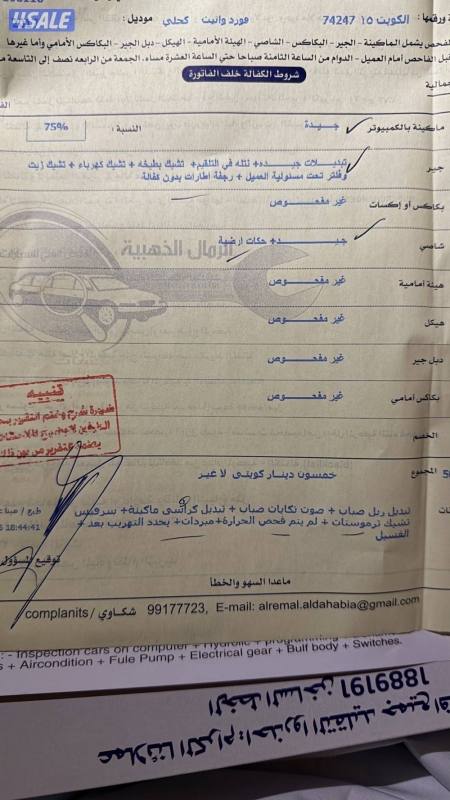 4SALE
ة ورقمها : الكويت ١٥ 74247 فورد وانيت : كحلي موديل :
لفحص يشمل الماكينة - الجير - البكاكس - الشاصي - الهيئة الأمامية - الهيكل - دبل الجير - البكاكس الأمامي وأما غيرها
قبل الفاحص أمام العميل - الدوام من الساعة الثامنة صباحا حتى الساعة العشرة مساء. الجمعة من الرابعه نصف إلى التاسعة
شروط الكفالة خلف الفاتورة
ماكينة بالكمبيوتر جيدة النسبة : 75%
جير تبديلات جيده + نتله في التلقيم + تشيك بطيخه + تشيك كهرباء + تشيك زيت
وفلتر تحت مسئولية العميل + رجفة اطارات بدون كفالة
بكاكس أو إكسات غير مفحوص
شاصي جيد + حكات ارضية
الرمال الذهبية
هيئة أمامية غير مفحوص
هيكل غير مفحوص
دبل جير غير مفحوص
بكاكس أمامي غير مفحوص
تنبيه
الخصم
المجموع خمسون دينار كويتي لا غير
تبديل ربل صباب + صوت تكايات صباب + تبديل كراسي ماكينة + سرفيس
تشيك ترموستات + لم يتم فحص الحرارة + مبردات + يحدد التهريب بعد
الغسيل
18:44:41
توقيع المسؤول
ماعدا السهو والخطأ
complanits / شكاوي 99177723, E-mail: alremal.aldahabia@gmail.com
: - Inspection cars on computer + Hydrolic +
s + Aircondition + Fule Pump + Electrical gear + Bulf body + Switches.
الخط الساخن 1889191
عملائنا الكرام : احذروا التقليد جميع